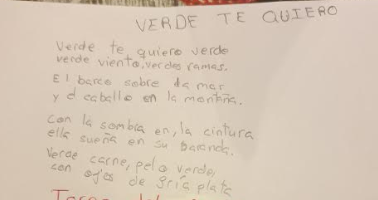 VERDE TE QUIERO
Verde te quiero verde
verde viento, verdes ramas.
El barco sobre la mar
y el caballo en la montaña.
Con la sombra en, la cintura
ella sueña en su baranda.
Verde carne, pelo verde,
con ojos de gris plata